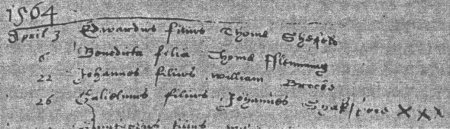 1564
April 3 Edwardus filius Thome
6 Benedicta filia Thome Fflemmyng
22 Johannes filius William Brooks
26 Gulielmus filius Johannes Shakspere XXX